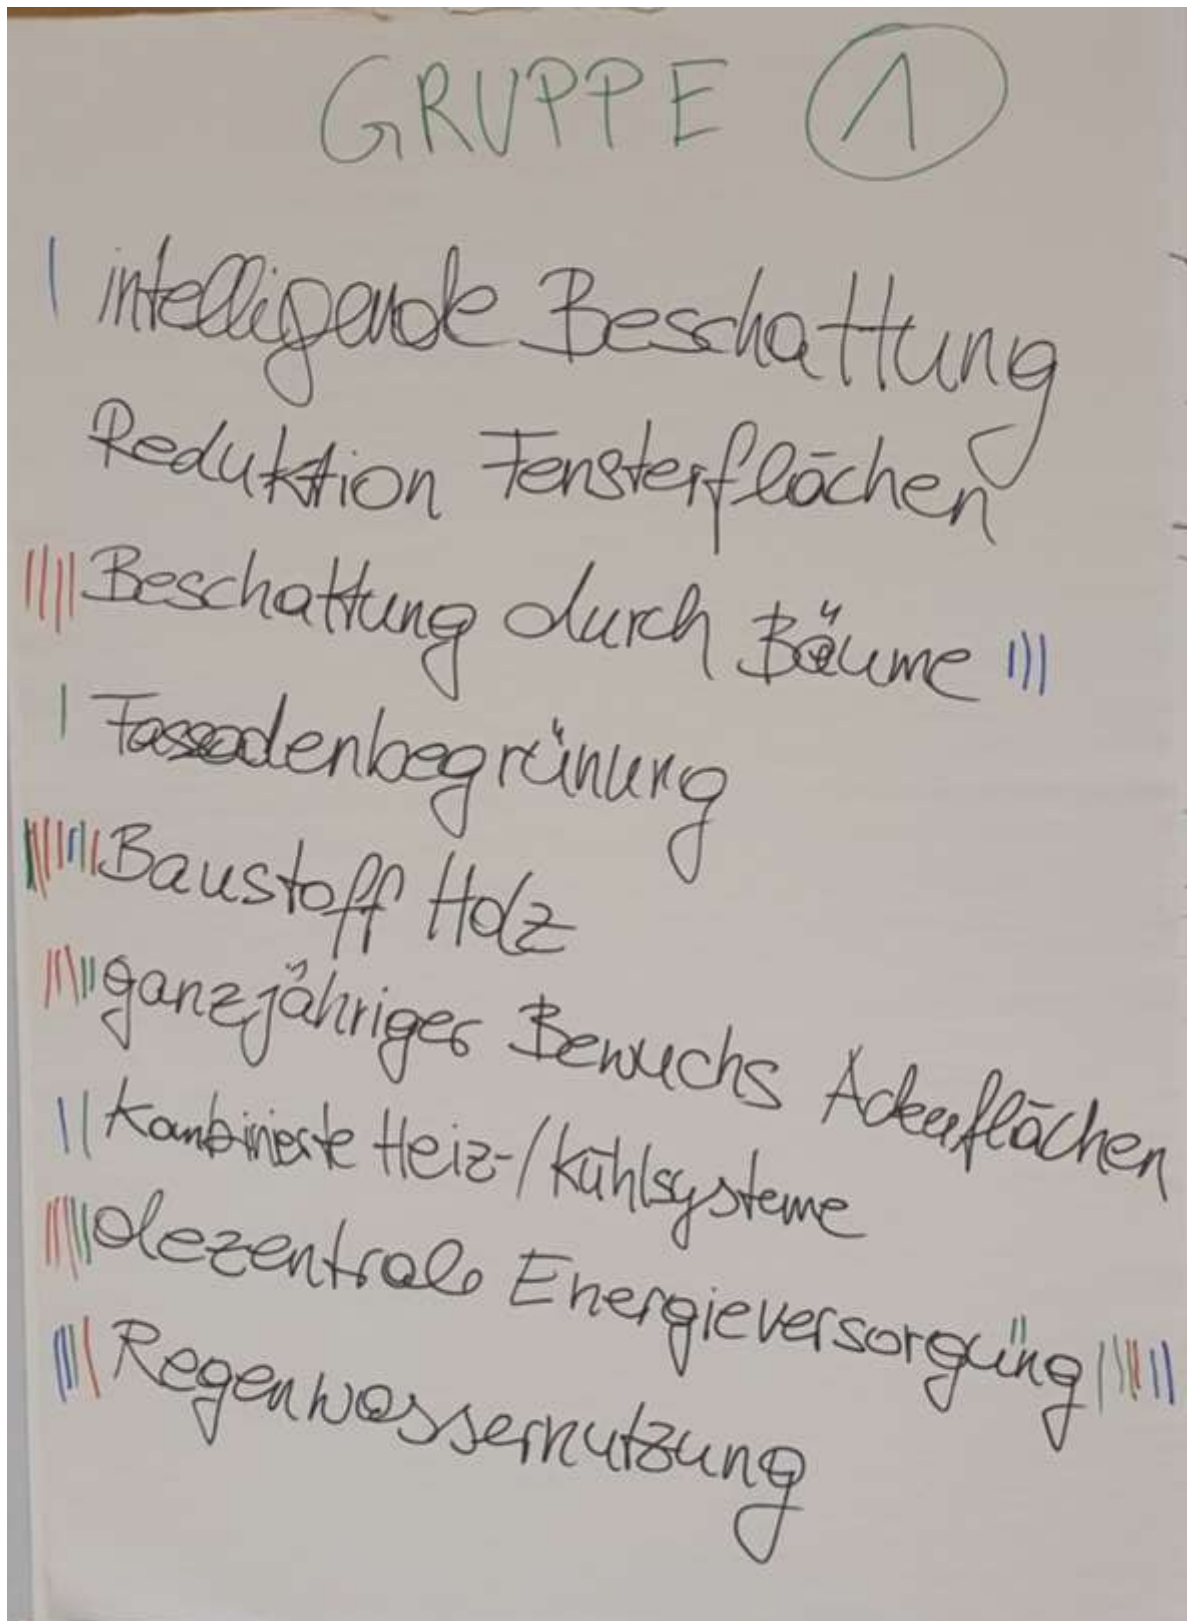 GRUPPE 1
intelligende Beschattung
Reduktion Fensterflächen
Beschattung durch Bäume
Fassadenbegrünung
Baustoff Holz
ganzjähriger Bewuchs Ackerflächen
Kombinierte Heiz-/Kühlsysteme
dezentrale Energieversorgung
Regenwassernutzung